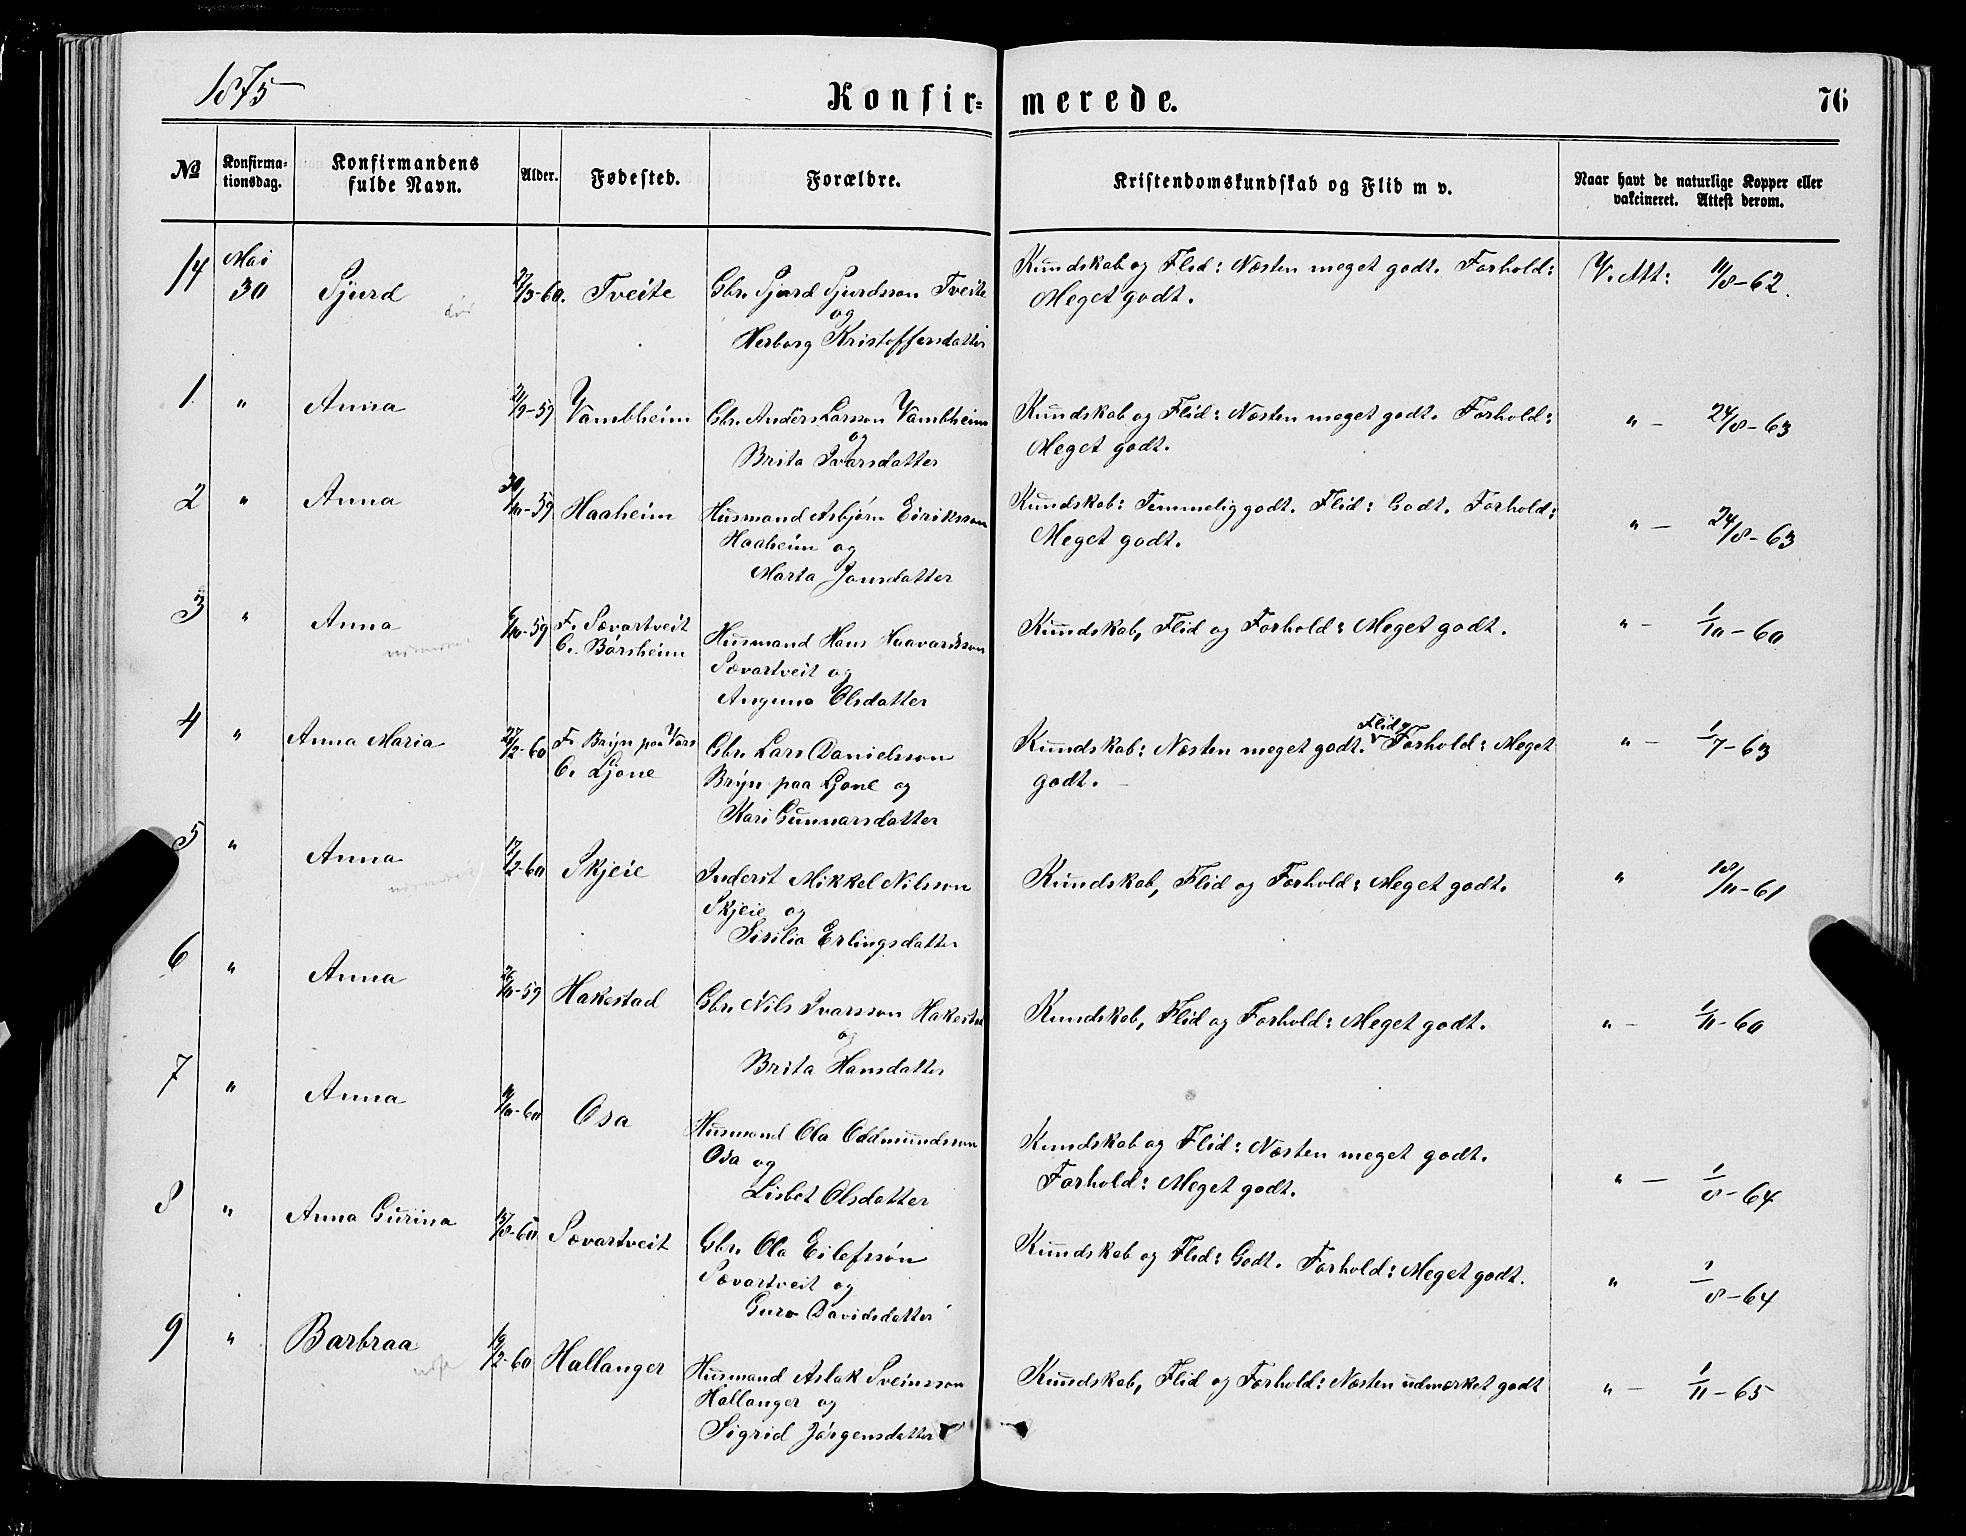 1875
Konfir= merede. 76
No
Konfirma-
tionsdag.
Konfirmandens
fulde Navn.
Alder.
Fødested.
Forældre.
Kristendomskundskab og Flid m v.
Naar havt de naturlige Kopper eller
vakcineret. Attest derom.
14 Mai 30 Sjurd /3-60. Tveite
Gbr. Sjurd Sjurdsson Tveite
og
Herborg Kristoffersdatter
Kundskab og Flid: Næsten meget godt. Forhold:
Meget godt.
V. Att: 11/8-62.
1 " Anna /9-59 Vambheim
Gbr. Anders Larsson Vambheim
og
Brita Ivarsdatter
Kundskab og Flid: Næsten meget godt. Forhold:
Meget godt.
" - 24/8-63
2 " Anna 30/10-59 Haaheim
Husmand Asbjørn Eiriksson
Haaheim og
Marta Jonsdatter
Kundskab: Temmelig godt. Flid: Godt. Forhold:
Meget godt.
" - 24/8-63
3 " Anna 6/10-59
F. Sævartveit
C. Børsheim
Husmand Hans Haavardsson
Sævartveit og
Angunna Olsdatter
Kundskab, Flid og Forhold: Meget godt.
" - 1/10-60
4 " Anna Maria 27/2-60
F. Brÿn paa Vors
C. Ljone
Gbr. Lars Danielsson
Brÿn paa Ljone og
Kari Gunnarsdatter
Kundskab: Næsten meget godt. Flid og Forhold: Meget
godt. -
" - 1/7-63
5 " Anna 17/2-60 Skjeie
Inderst Mikkel Nilsson
Skjeie og
Sirilia Erlingsdatter
Kundskab, Flid og Forhold: Meget godt.
" 18/11-61
6 " Anna 26/10-59 Hakestad
Gbr. Nils Ivarsson Hakestad
og
Brita Hansdatter
Kundskab, Flid og Forhold: Meget godt.
" - 1/11-60
7 " Anna /10-60 Osa
Husmand Ola Oddmundsson
Osa og
Lisbet Olsdatter
Kundskab og Flid: Næsten meget godt.
Forhold: Meget godt.
" - 1/8-64
8 " Anna Gurina 15/8-60 Sævartveit
Gbr. Ola Eilefssøn
Sævartveit og
Guro Davidsdatter
Kundskab og Flid: Godt. Forhold: Meget godt.
" 1/8-64
9 " Barbraa 19/2-60 Hallanger
Husmand Aslak Sveinsson
Hallanger og
Sigrid Jørgensdatter
Kundskab, Flid og Forhold: Næsten udmærket godt
" - 1/11-65